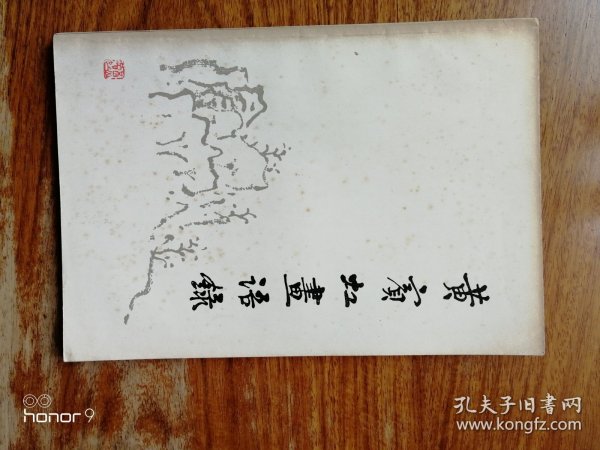 黄宾虹畫语錄
honor 9
孔夫子旧書网
www.kongfz.com